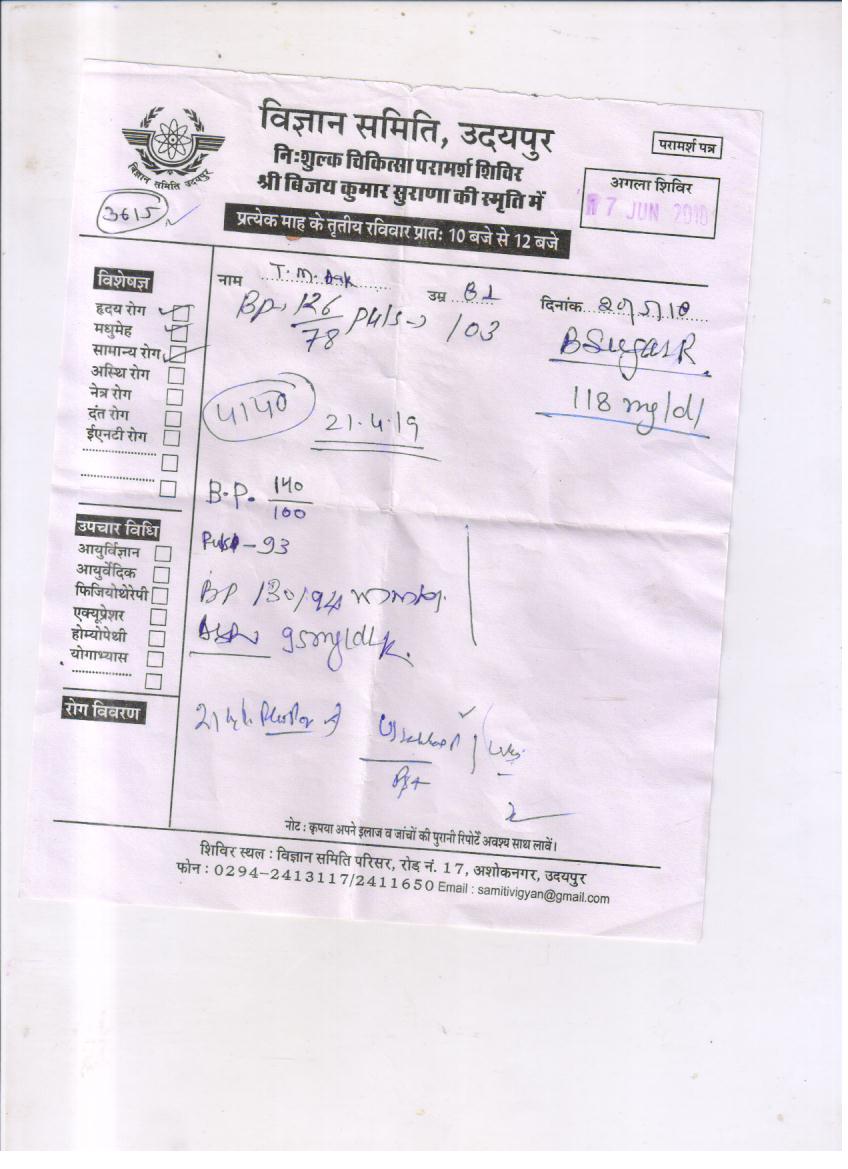 विज्ञान समिति, उदयपुर
निःशुल्क चिकित्सा परामर्श शिविर
श्री बिजय कुमार सुराणा की स्मृति में
प्रत्येक माह के तृतीय रविवार प्रातः 10 बजे से 12 बजे
विज्ञान समिति उदयपुर
परामर्श पत्र
अगला शिविर
17 JUN 2018
3615
नाम T. M. उम्र 81 दिनांक 20/5/18
BP 126/78 Puls 103
BSugar R.
118 mg/dl
4140
21.4.19
B.P. 140/100
Pulse - 93
BP 130/94 mmHg.
95mg/dl
विशेषज्ञ
हृदय रोग
मधुमेह
सामान्य रोग
अस्थि रोग
नेत्र रोग
दंत रोग
ईएनटी रोग
उपचार विधि
आयुर्विज्ञान
आयुर्वेदिक
फिजियोथेरेपी
एक्यूप्रेशर
होम्योपेथी
योगाभ्यास
रोग विवरण
नोट : कृपया अपने इलाज व जांचों की पुरानी रिपोर्टें अवश्य साथ लावें।
शिविर स्थल : विज्ञान समिति परिसर, रोड़ नं. 17, अशोकनगर, उदयपुर
फोन : 0294-2413117/2411650 Email : samitivigyan@gmail.com